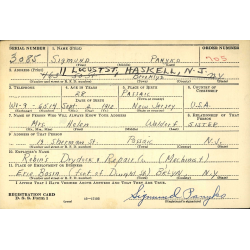 SERIAL NUMBER 1. NAME (Print) ORDER NUMBER
3085 SIGMUND PANYKO 703
2. ADDRESS (Print)
11 LOCUST ST, HASKELL, N.J.
3. TELEPHONE 4. AGE IN YEARS 5. PLACE OF BIRTH 6. COUNTRY OF CITIZENSHIP
28 Passaic
DATE OF BIRTH
WI-9-6514 Sept 6 1912 New Jersey U.S.A.
7. NAME OF PERSON WHO WILL ALWAYS KNOW YOUR ADDRESS 8. RELATIONSHIP OF THAT PERSON
Mrs Helen SISTER
9. ADDRESS OF THAT PERSON
Sherman St Passaic N.J.
10. EMPLOYER'S NAME
Robins Drydock & Repair Co (Machinist)
11. PLACE OF EMPLOYMENT OR BUSINESS
Erie Basin (foot of Dwight St) BKLYN N.Y.
I AFFIRM THAT I HAVE VERIFIED ABOVE ANSWERS AND THAT THEY ARE TRUE.
REGISTRATION CARD
D. S. S. Form 1
Sigmund Panyko